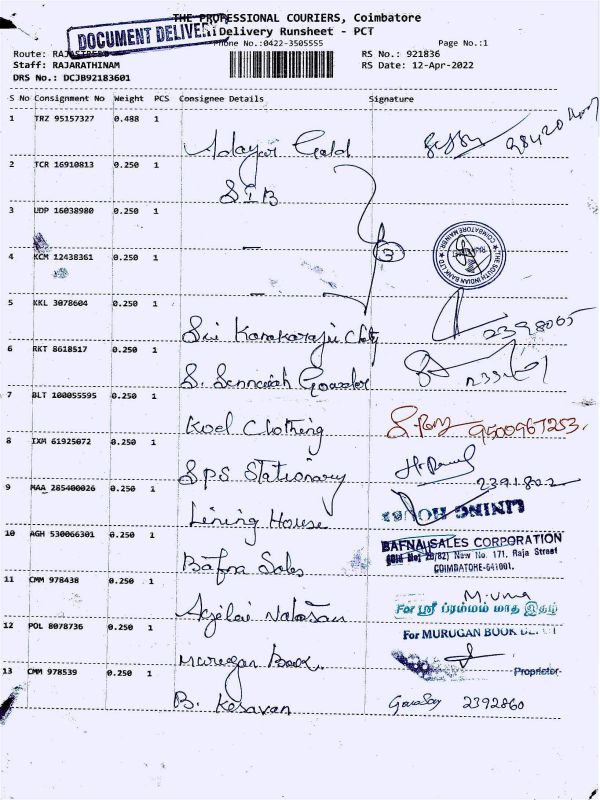 THE PROFESSIONAL COURIERS, Coimbatore
DOCUMENT DELIVERY
Delivery Runsheet - PCT
Phone No.:0422-3505555 Page No.:1
Route: RAJASTREET RS No.: 921836
Staff: RAJARATHINAM RS Date: 12-Apr-2022
DRS No.: DCJB92183601
S No Consignment No Weight PCS Consignee Details Signature
1 TRZ 95157327 0.488 1
Adayar Gold
2 TCR 16910813 0.250 1
SIB
3 UDP 16038980 0.250 1
—
THE SOUTH INDIAN BANK LTD
COIMBATORE MAIN BR.
3
4 KCM 12438361 0.250 1
—
5 KKL 3078604 0.250 1
Sri
2398065
6 RKT 8618517 0.250 1
S.
7 BLT 100055595 0.250 1
Koel Clothing 9500967253
8 IXM 61925072 0.250 1
SPS Stationary
2391802
9 MAA 285400026 0.250 1
Lining House
LINING HOUSE
10 AGH 530066301 0.250 1
BAFNA SALES CORPORATION
(Old No: 20/82) New No. 171, Raja Street
COIMBATORE-641001.
Bafna Sales
11 CMM 978438 0.250 1
M. Uma
For ஸ்ரீ ப்ரம்மம் மாத இதழ்
12 POL 8078736 0.250 1
For MURUGAN BOOK DEPOT
Murugan Book.
Proprietor
13 CMM 978539 0.250 1
B. Kesavan 2392860